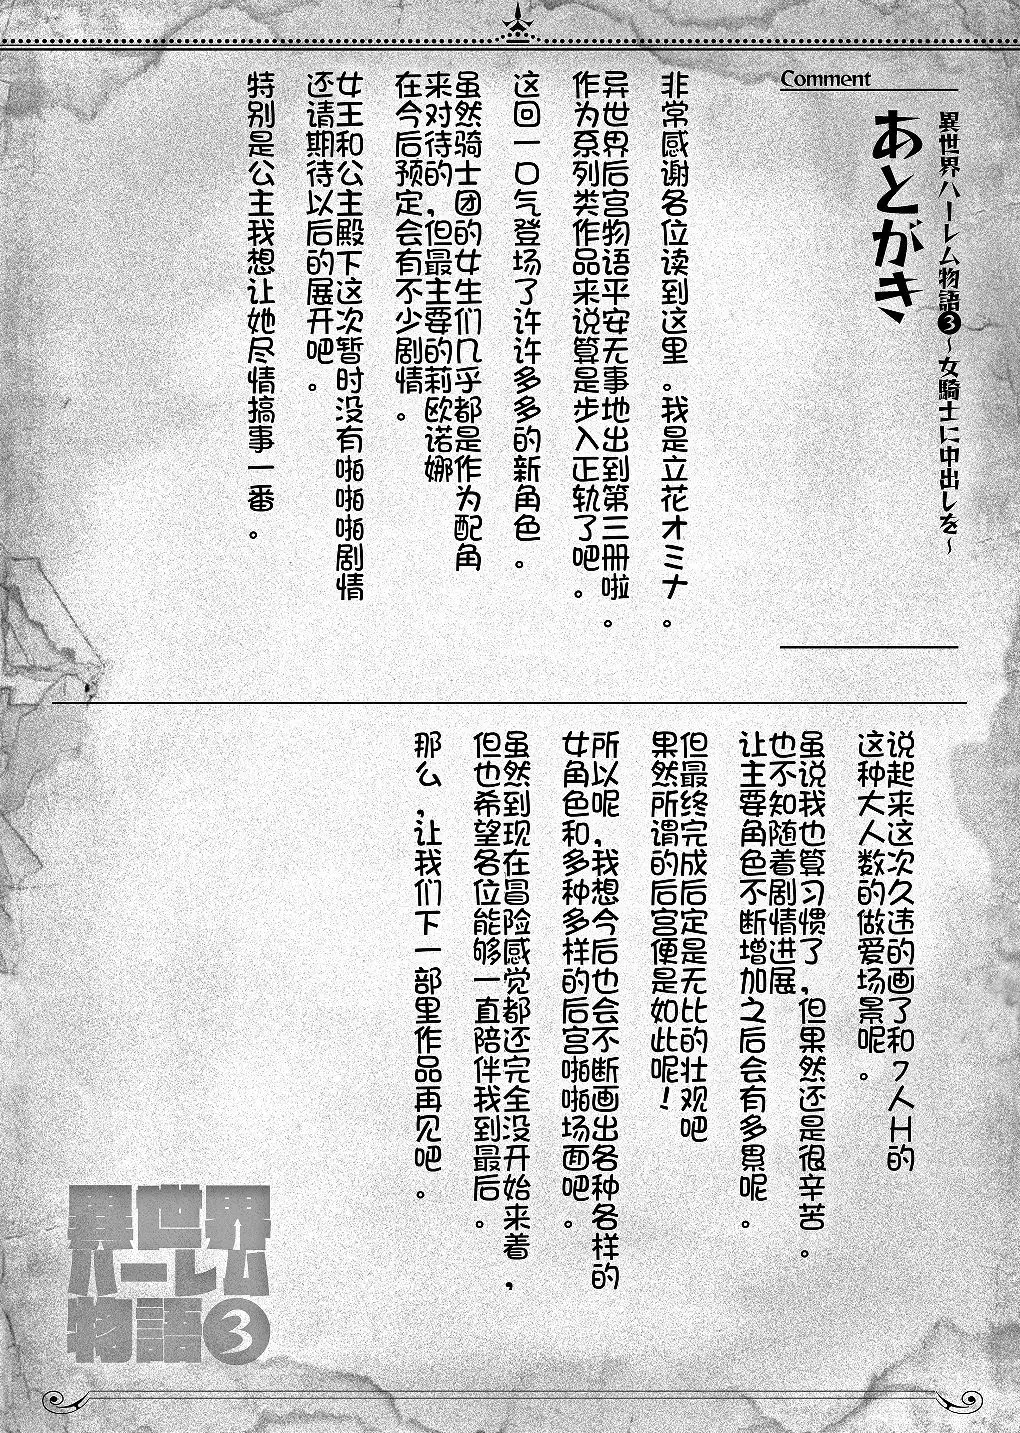 Comment
異世界ハーレム物語❸～女騎士に中出しを～
あとがき
非常感谢各位读到这里。我是立花オミナ。
异世界后宫物语平安无事地出到第三册啦。
作为系列类作品来说算是步入正轨了吧。
这回一口气登场了许许多多的新角色。
虽然骑士团的女生们几乎都是作为配角
来对待的,但最主要的莉欧诺娜
在今后预定会有不少剧情。
女王和公主殿下这次暂时没有啪啪啪剧情
还请期待以后的展开吧。
特别是公主我想让她尽情搞事一番。
说起来这次久违的画了和7人H的
这种大人数的做爱场景呢。
虽说我也算习惯了,但果然还是很辛苦。
也不知随着剧情进展
让主要角色不断增加之后会有多累呢。
但最终完成后定是无比的壮观吧
果然所谓的后宫便是如此呢!
所以呢,我想今后也会不断画出各种各样的
女角色和多种多样的后宫啪啪场面吧。
虽然到现在冒险感觉都还完全没开始来着,
但也希望各位能够一直陪伴我到最后。
那么,让我们下一部里作品再见吧。
異世界
ハーレム
物語❸